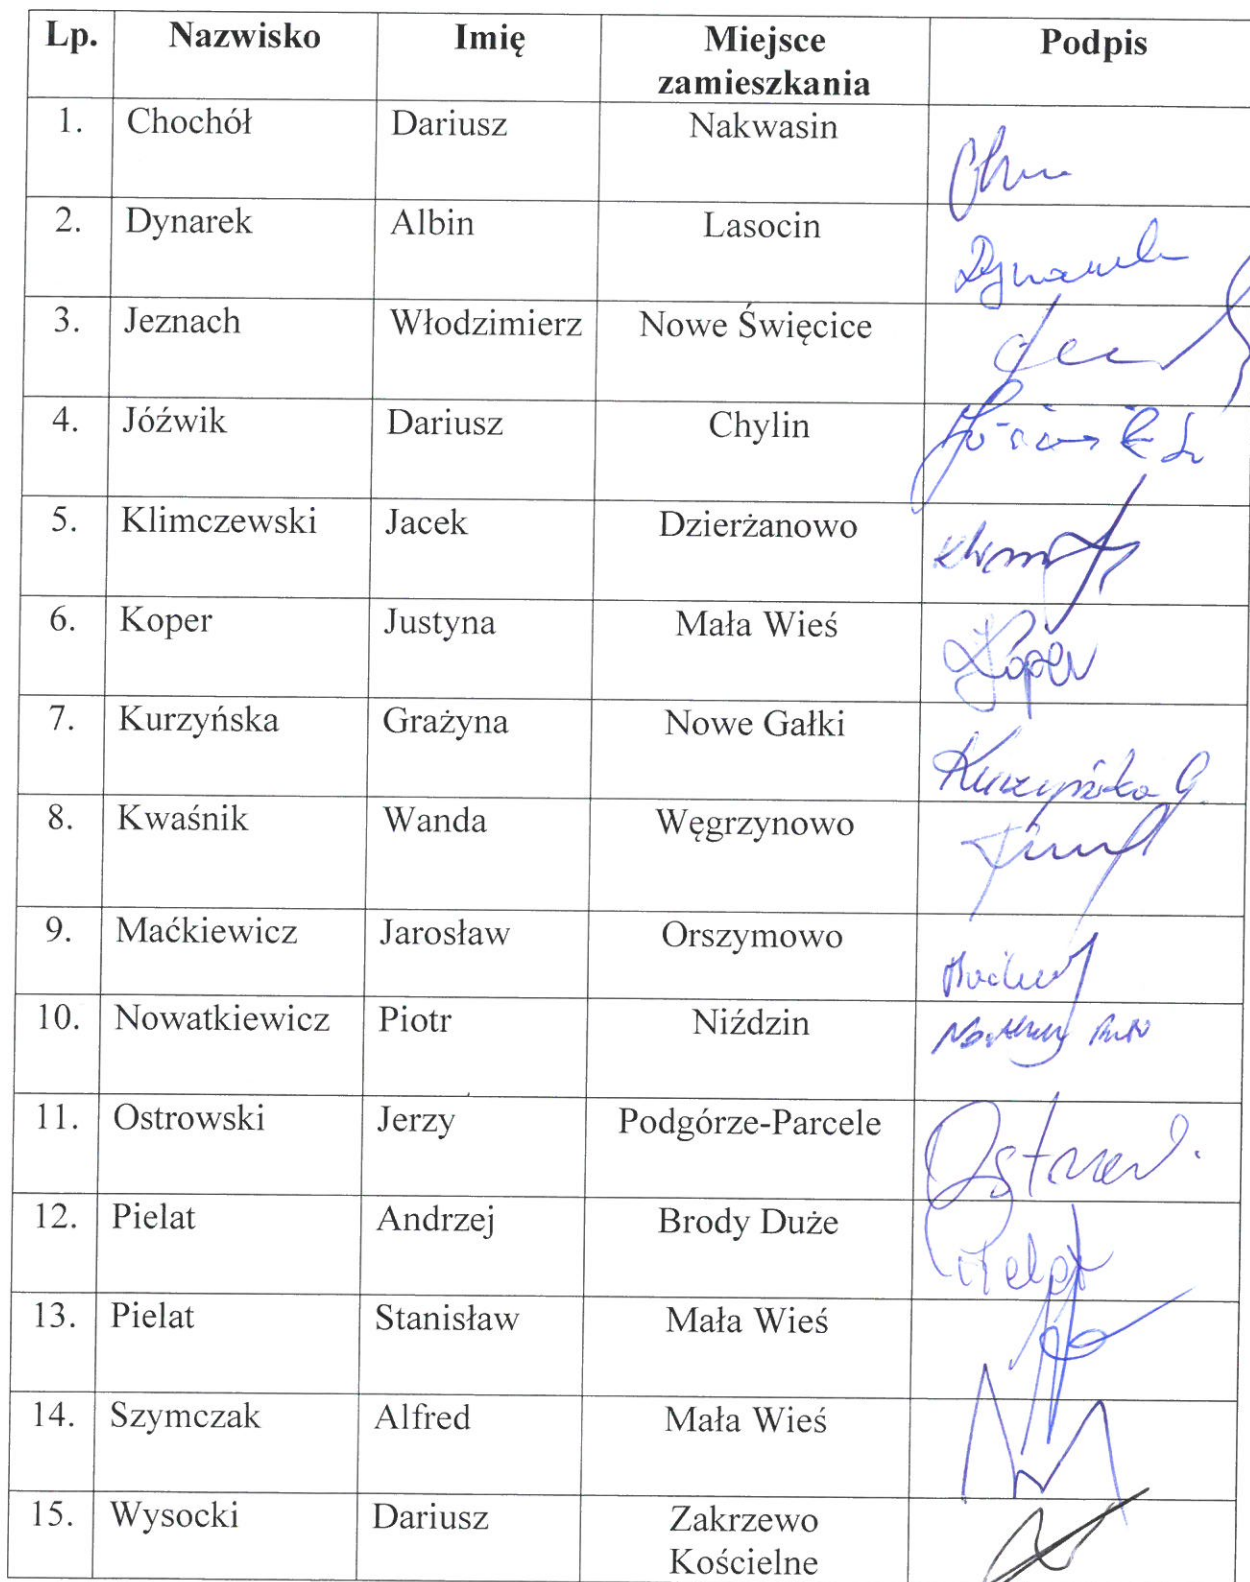 Lp. Nazwisko Imię Miejsce zamieszkania Podpis
1. Chochół Dariusz Nakwasin
2. Dynarek Albin Lasocin
3. Jeznach Włodzimierz Nowe Święcice
4. Jóźwik Dariusz Chylin
5. Klimczewski Jacek Dzierżanowo
6. Koper Justyna Mała Wieś Koper
7. Kurzyńska Grażyna Nowe Gałki Kurzyńska G.
8. Kwaśnik Wanda Węgrzynowo
9. Maćkiewicz Jarosław Orszymowo
10. Nowatkiewicz Piotr Niździn
11. Ostrowski Jerzy Podgórze-Parcele
12. Pielat Andrzej Brody Duże Pielat
13. Pielat Stanisław Mała Wieś
14. Szymczak Alfred Mała Wieś
15. Wysocki Dariusz Zakrzewo
Kościelne